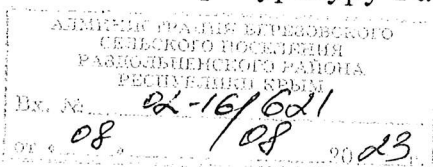 АДМИНИСТРАЦИЯ БЕРЕЗОВСКОГО
СЕЛЬСКОГО ПОСЕЛЕНИЯ
РАЗДОЛЬНЕНСКОГО РАЙОНА
РЕСПУБЛИКИ КРЫМ
Вх. № 02-16/621
от « 08 » 08 2023